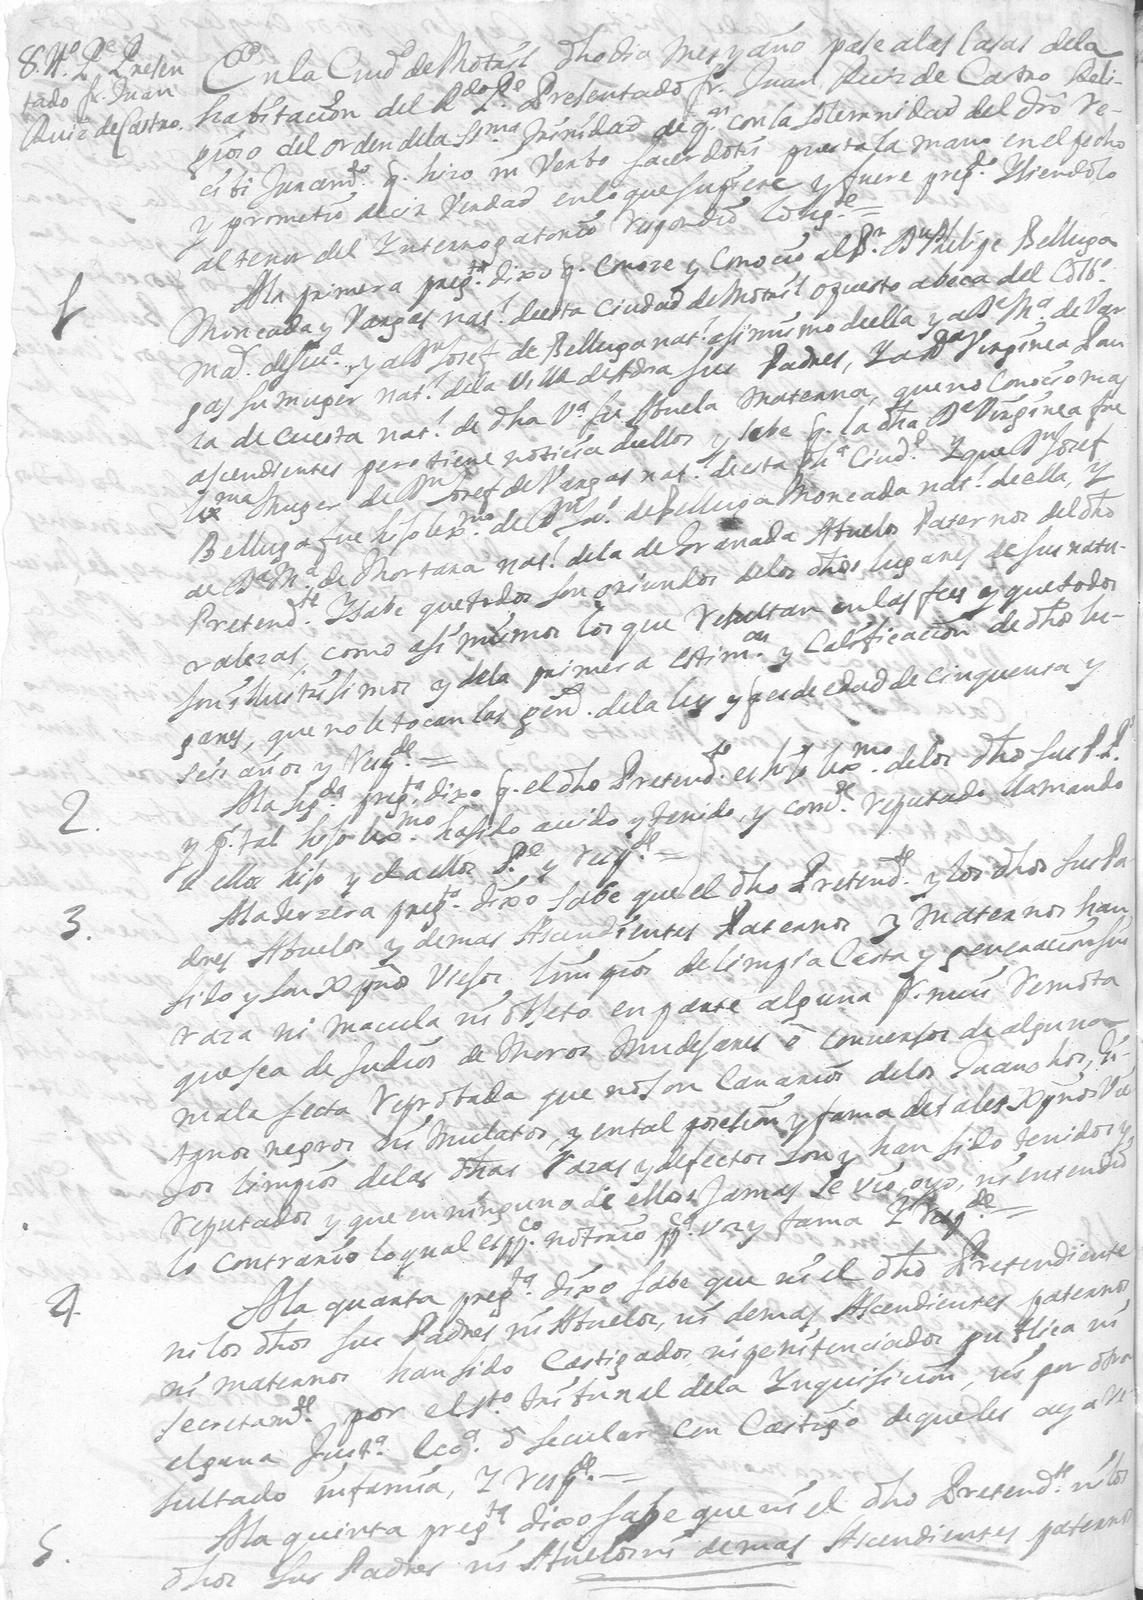 8. N.º R. P.e Presen
tado fr. Juan
Ruiz de Castro.
En la Ciud. de Motril dho dia mes y año pase a las Casas de la
habitacion del R.do P.e Presentado fr. Juan Ruiz de Castro Reli-
gioso del orden de la SS.ma Trinidad de q.n con la solemnidad del dro re-
cibi Juram.to q. hizo in Verbo sacerdotis puesta la mano en el pecho
y prometio decir Verdad en lo que supiere y fuere preg.do y siendolo
al tenor del Interrogatorio respondio lo sig.te =
1 A la primera preg.ta dixo q. conoze y conocio al B.r D.n Phelipe Belluga
Moncada y Vargas nat.l de esta Ciudad de Motril opuesto a beca del Coleg.
ma.r de y a D.n Josef de Belluga nat.l asi mismo de ella y a D.a M.a de Var
gas su muger nat.l de la Villa de Adra sus Padres, Y a D.a Virginea Lau
ra de Cuesta nat.l de dha V.a su Abuela Materna, que no Conocio mas
ascendientes pero tiene noticia de ellos y sabe q. la dha D.a Virginea fue
lex.ma Muger de D.n Josef de Vargas nat.l de esta dh.a Ciud.d Y que D.n Josef
Belluga fue hijo lex.mo de D.n de Belluga Moncada nat.l de ella, y
de D.a M.a de Mortara nat.l de la de Granada Abuelos Paternos del dho
Pretend.te Y sabe que todos son oriundos de los dhos lugares de sus natu-
ralezas, como asi mismos los que resultan en las fees y que todos
son illustrisimos y de la primera estim.on y Calificacion de dhos lu-
gares, que no le tocan las gen.s de la ley y q es de edad de cinquenta y
seis años y resp.de =
2. A la seg.da preg.ta dixo q. el dho Pretend.te es hijo lex.mo de los dhos sus P.P.s
y p.r tal hijo lex.mo ha sido auido y tenido, y com.te reputado llamando
le ellos hijo y el a ellos P.e y resp.de =
3. A la terzera preg.ta dixo sabe que el dho Pretend.te y los dhos sus Pa
dres Abuelos y demas Ascendientes Paternos y Maternos han
sido y son Xpnos Viejos limpios de limpia Casta y generacion sin
raza ni macula ni defeto en parte alguna p.r mui remota
que sea de Judios de Moros Mudejares ó conuersos de alguna
mala secta reprobada que no son Canarios de los Guanchos, Gi-
tanos negros ni Mulatos, y en tal posesion y fama de tales Xpnos Vie
jos limpios de las dhas razas y defectos son y han sido tenidos y
reputados y que en ninguno de ellos Jamas se vio, oyo, ni entendio
lo contrario lo qual es pp.co notorio pp.ca voz y fama Y resp.de =
4. A la quarta preg.ta dixo sabe que ni el dho Pretendiente
ni los dhos sus Padres ni Abuelos, ni demas Ascendientes paternos
ni maternos han sido Castigados ni penitenciados publica ni
secretam.te por el S.to Tribunal de la Inquisicion, ni por otra
alguna Just.a Ecc.a ó secular con Castigo de que les aya re-
sultado infamia, Y resp.de =
5. A la quinta preg.ta dixo sabe que ni el dho Pretend.te ni los
dhos sus Padres ni Abuelos ni demas Ascendientes paternos